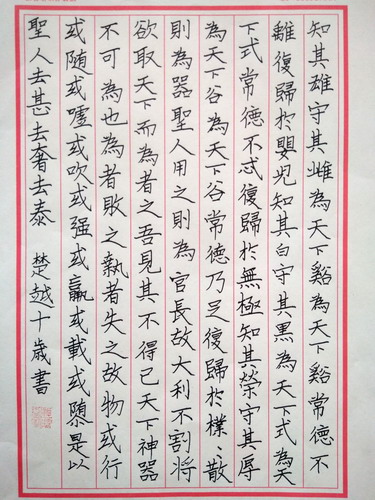 知其雄守其雌為天下谿為天下谿常德不
離復歸於嬰兒知其白守其黑為天下式為天
下式常德不忒復歸於無極知其榮守其辱
為天下谷為天下谷常德乃足復歸於樸〻散
則為器聖人用之則為官長故大利不割將
欲取天下而為者之吾見其不得已天下神器
不可為也為者敗之執者失之故物或行
或随或噓或吹或强或羸或載或隳是以
聖人去甚去奢去泰 楚越十歲書